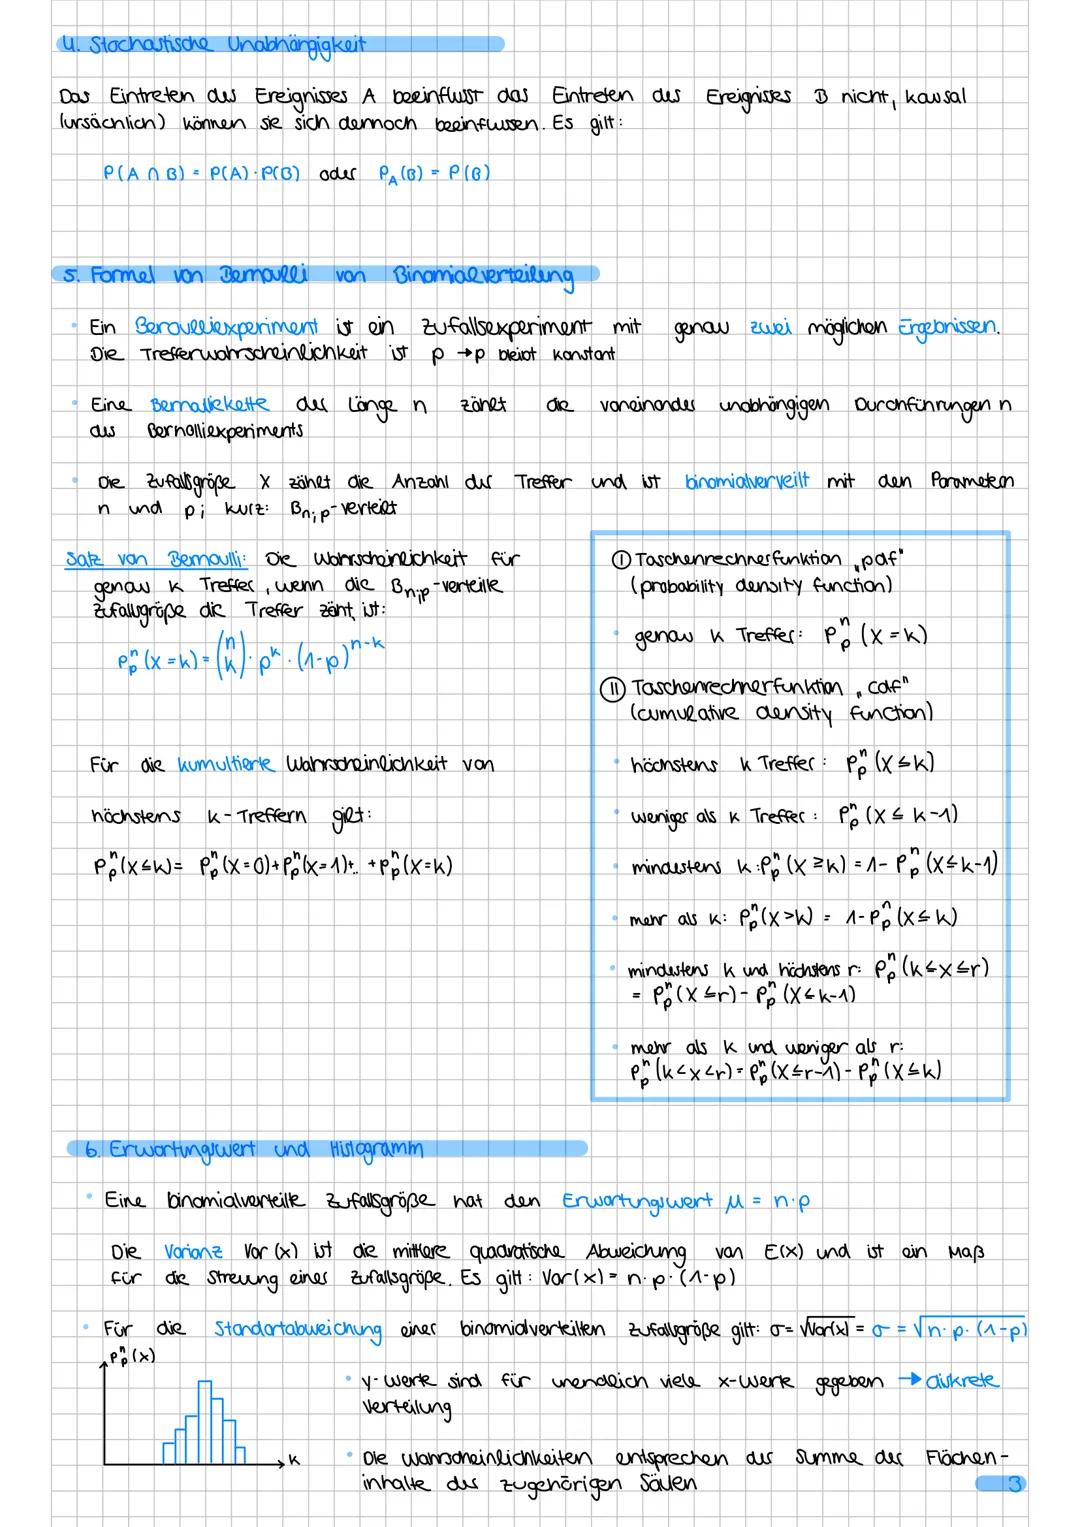 4. Stochastische Unabhängigkeit
Das Eintreten des Ereignisses A beeinflusst das Eintreten des Ereignisses B nicht, kausal
(ursächlich) können sie sich dennoch beeinflussen. Es gilt:
P(A ∩ B) = P(A) · P(B) oder P_A(B) = P(B)
5. Formel von Bernoulli von Binomialverteilung
• Ein Beroulliexperiment ist ein Zufallsexperiment mit genau zwei möglichen Ergebnissen.
Die Trefferwahrscheinlichkeit ist p → p bleibt konstant
• Eine Bernoullikette der Länge n zählt die voneinander unabhängigen Durchführungen n
des Bernolliexperiments
• Die Zufallsgröße X zählt die Anzahl der Treffer und ist binomialverveilt mit den Parametern
n und p; kurz: B_n;p-verteilt
Satz von Bernoulli: Die Wahrscheinlichkeit für
genau k Treffer, wenn die B_n;p-verteilte
Zufallsgröße die Treffer zählt, ist:
P_p^n (X = k) = (n k) · p^k · (1-p)^n-k
Für die kumultierte Wahrscheinlichkeit von
höchstens k-Treffern gilt:
P_p^n (X ≤ k) = P_p^n (X = 0) + P_p^n (X = 1) + .. + P_p^n (X = k)
Ⓘ Taschenrechnerfunktion „pdf"
(probability density function)
• genau k Treffer: P_p^n (X = k)
Ⅱ Taschenrechnerfunktion „cdf"
(cumulative density function)
• höchstens k Treffer: P_p^n (X ≤ k)
• weniger als k Treffer: P_p^n (X ≤ k-1)
• mindestens k: P_p^n (X ≥ k) = 1 - P_p^n (X ≤ k-1)
• mehr als k: P_p^n (X > k) = 1 - P_p^n (X ≤ k)
• mindestens k und höchstens r: P_p^n (k ≤ x ≤ r)
= P_p^n (X ≤ r) - P_p^n (X ≤ k-1)
• mehr als k und weniger als r:
P_p^n (k < x < r) = P_p^n (X ≤ r-1) - P_p^n (X ≤ k)
6. Erwartungswert und Histogramm
• Eine binomialverteilte Zufallsgröße hat den Erwartungswert μ = n·p
Die Varianz Var (x) ist die mittlere quadratische Abweichung von E(x) und ist ein Maß
für die Streuung einer Zufallsgröße. Es gilt: Var(x) = n · p · (1-p)
• Für die Standartabweichung einer binomialverteilten Zufallsgröße gilt: σ = √Var(x) = σ = √n · p · (1-p)
P_p^n (x)
k
• y-Werte sind für unendlich viele x-Werte gegeben → diskrete
Verteilung
• Die Wahrscheinlichkeiten entsprechen der Summe der Flächen-
inhalte der zugehörigen Säulen
3